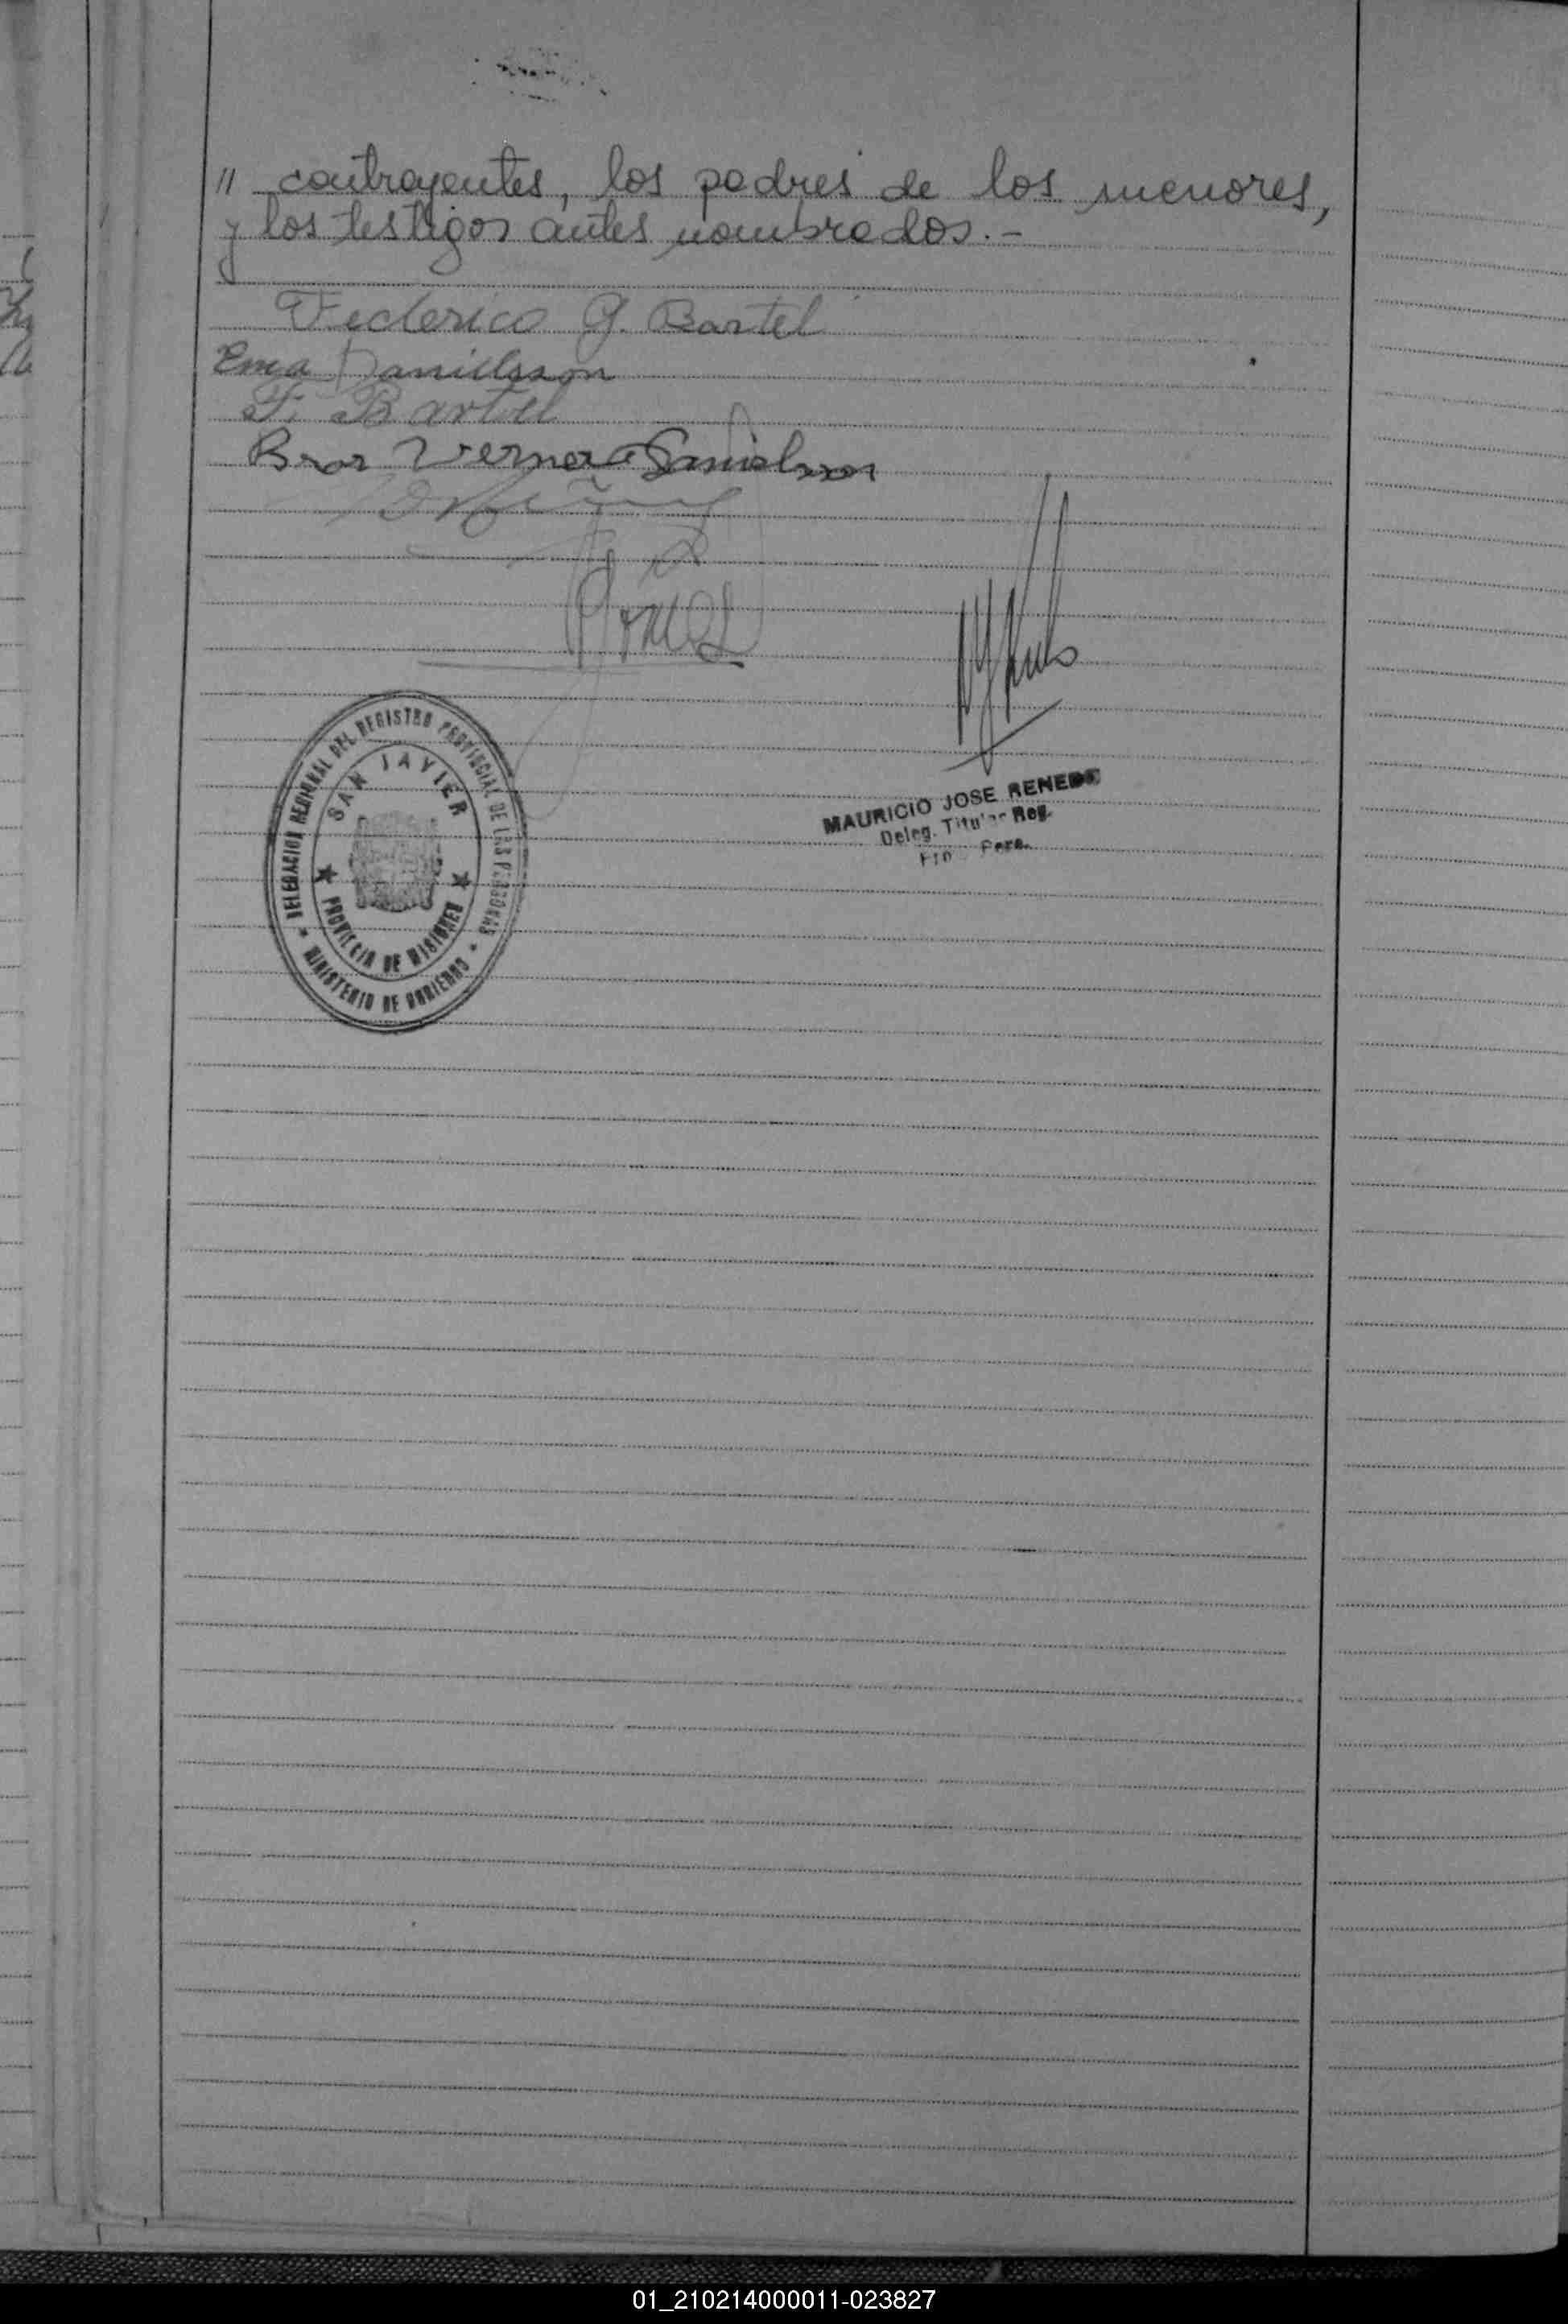 " contrayentes, los padres de los menores,
y los testigos antes nombrados.-
Federico G. Bartel
Ema Danielsson
F. Bartel
Bror Verner Danielsson
DELEGACION REGIONAL DEL REGISTRO PROVINCIAL DE LAS PERSONAS
SAN JAVIER
PROVINCIA DE MISIONES
MINISTERIO DE GOBIERNO
MAURICIO JOSE RENEDO
Deleg. Titular Reg.
Pers.
01_210214000011-023827